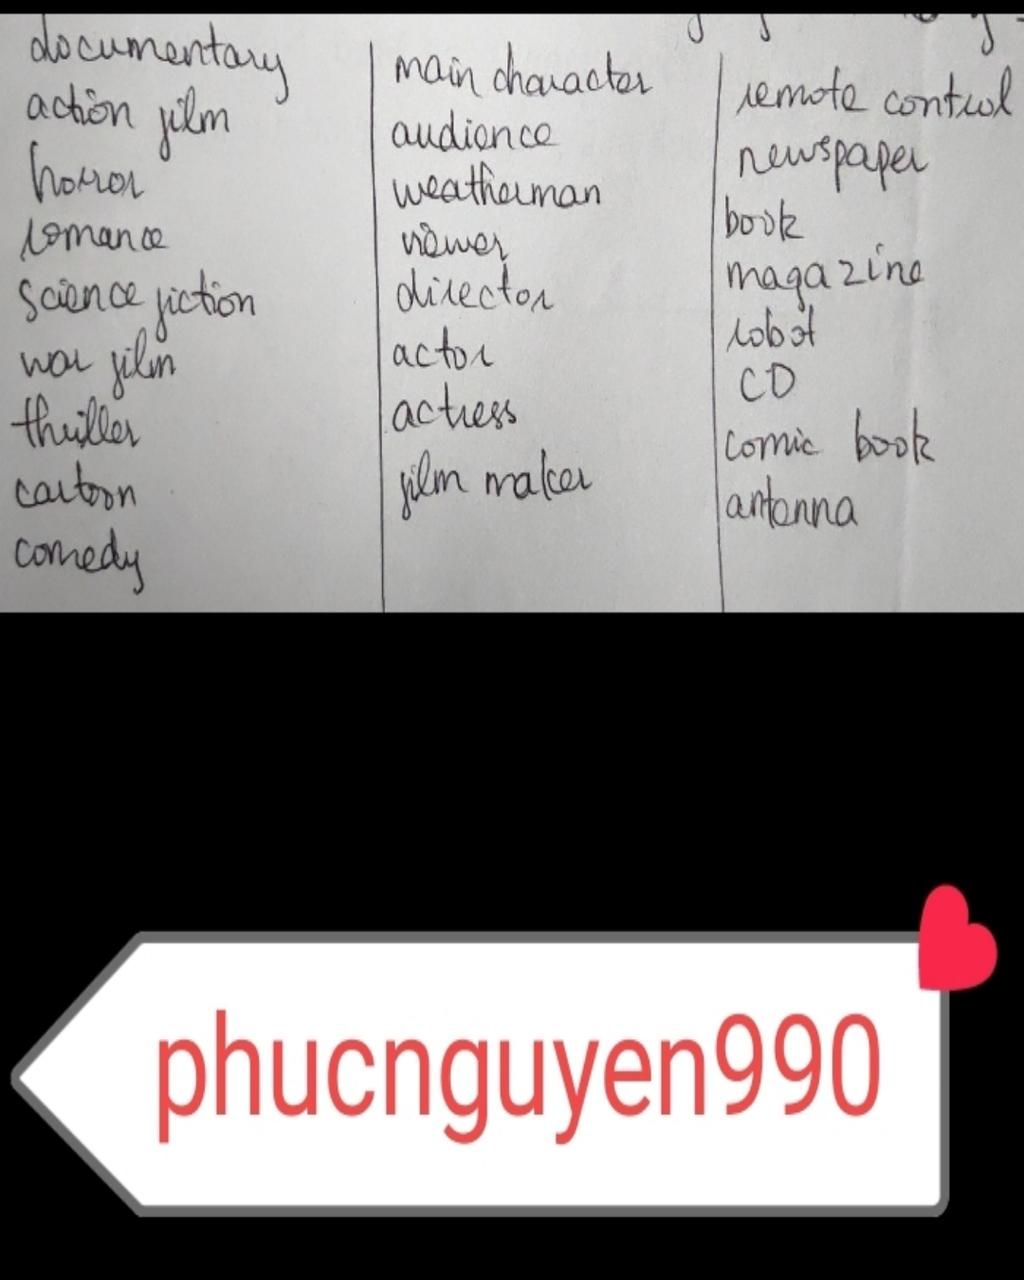 documentary
action film
horror
romance
science fiction
war film
thriller
cartoon
comedy
main character
audience
weatherman
viewer
director
actor
actress
film maker
remote control
newspaper
book
magazine
robot
CD
comic book
antenna
phucnguyen990